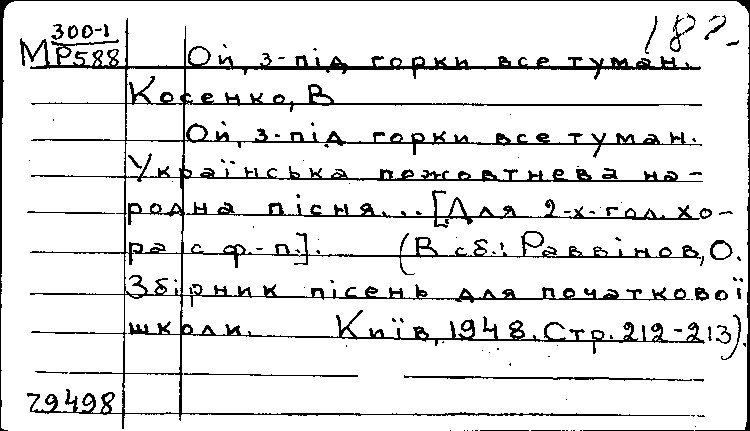 300-1
М Р588
182
Ой, з-під горки все туман.
Косенко, В
Ой, з-під горки все туман.
Українська пожовтнева на-
родна пісня... [Для 2-х-гол. хо-
ра с ф.-п.]. (В сб.: Раввінов, О.
Збірник пісень для початкової
школи. Київ, 1948. Стр. 212-213).
79498